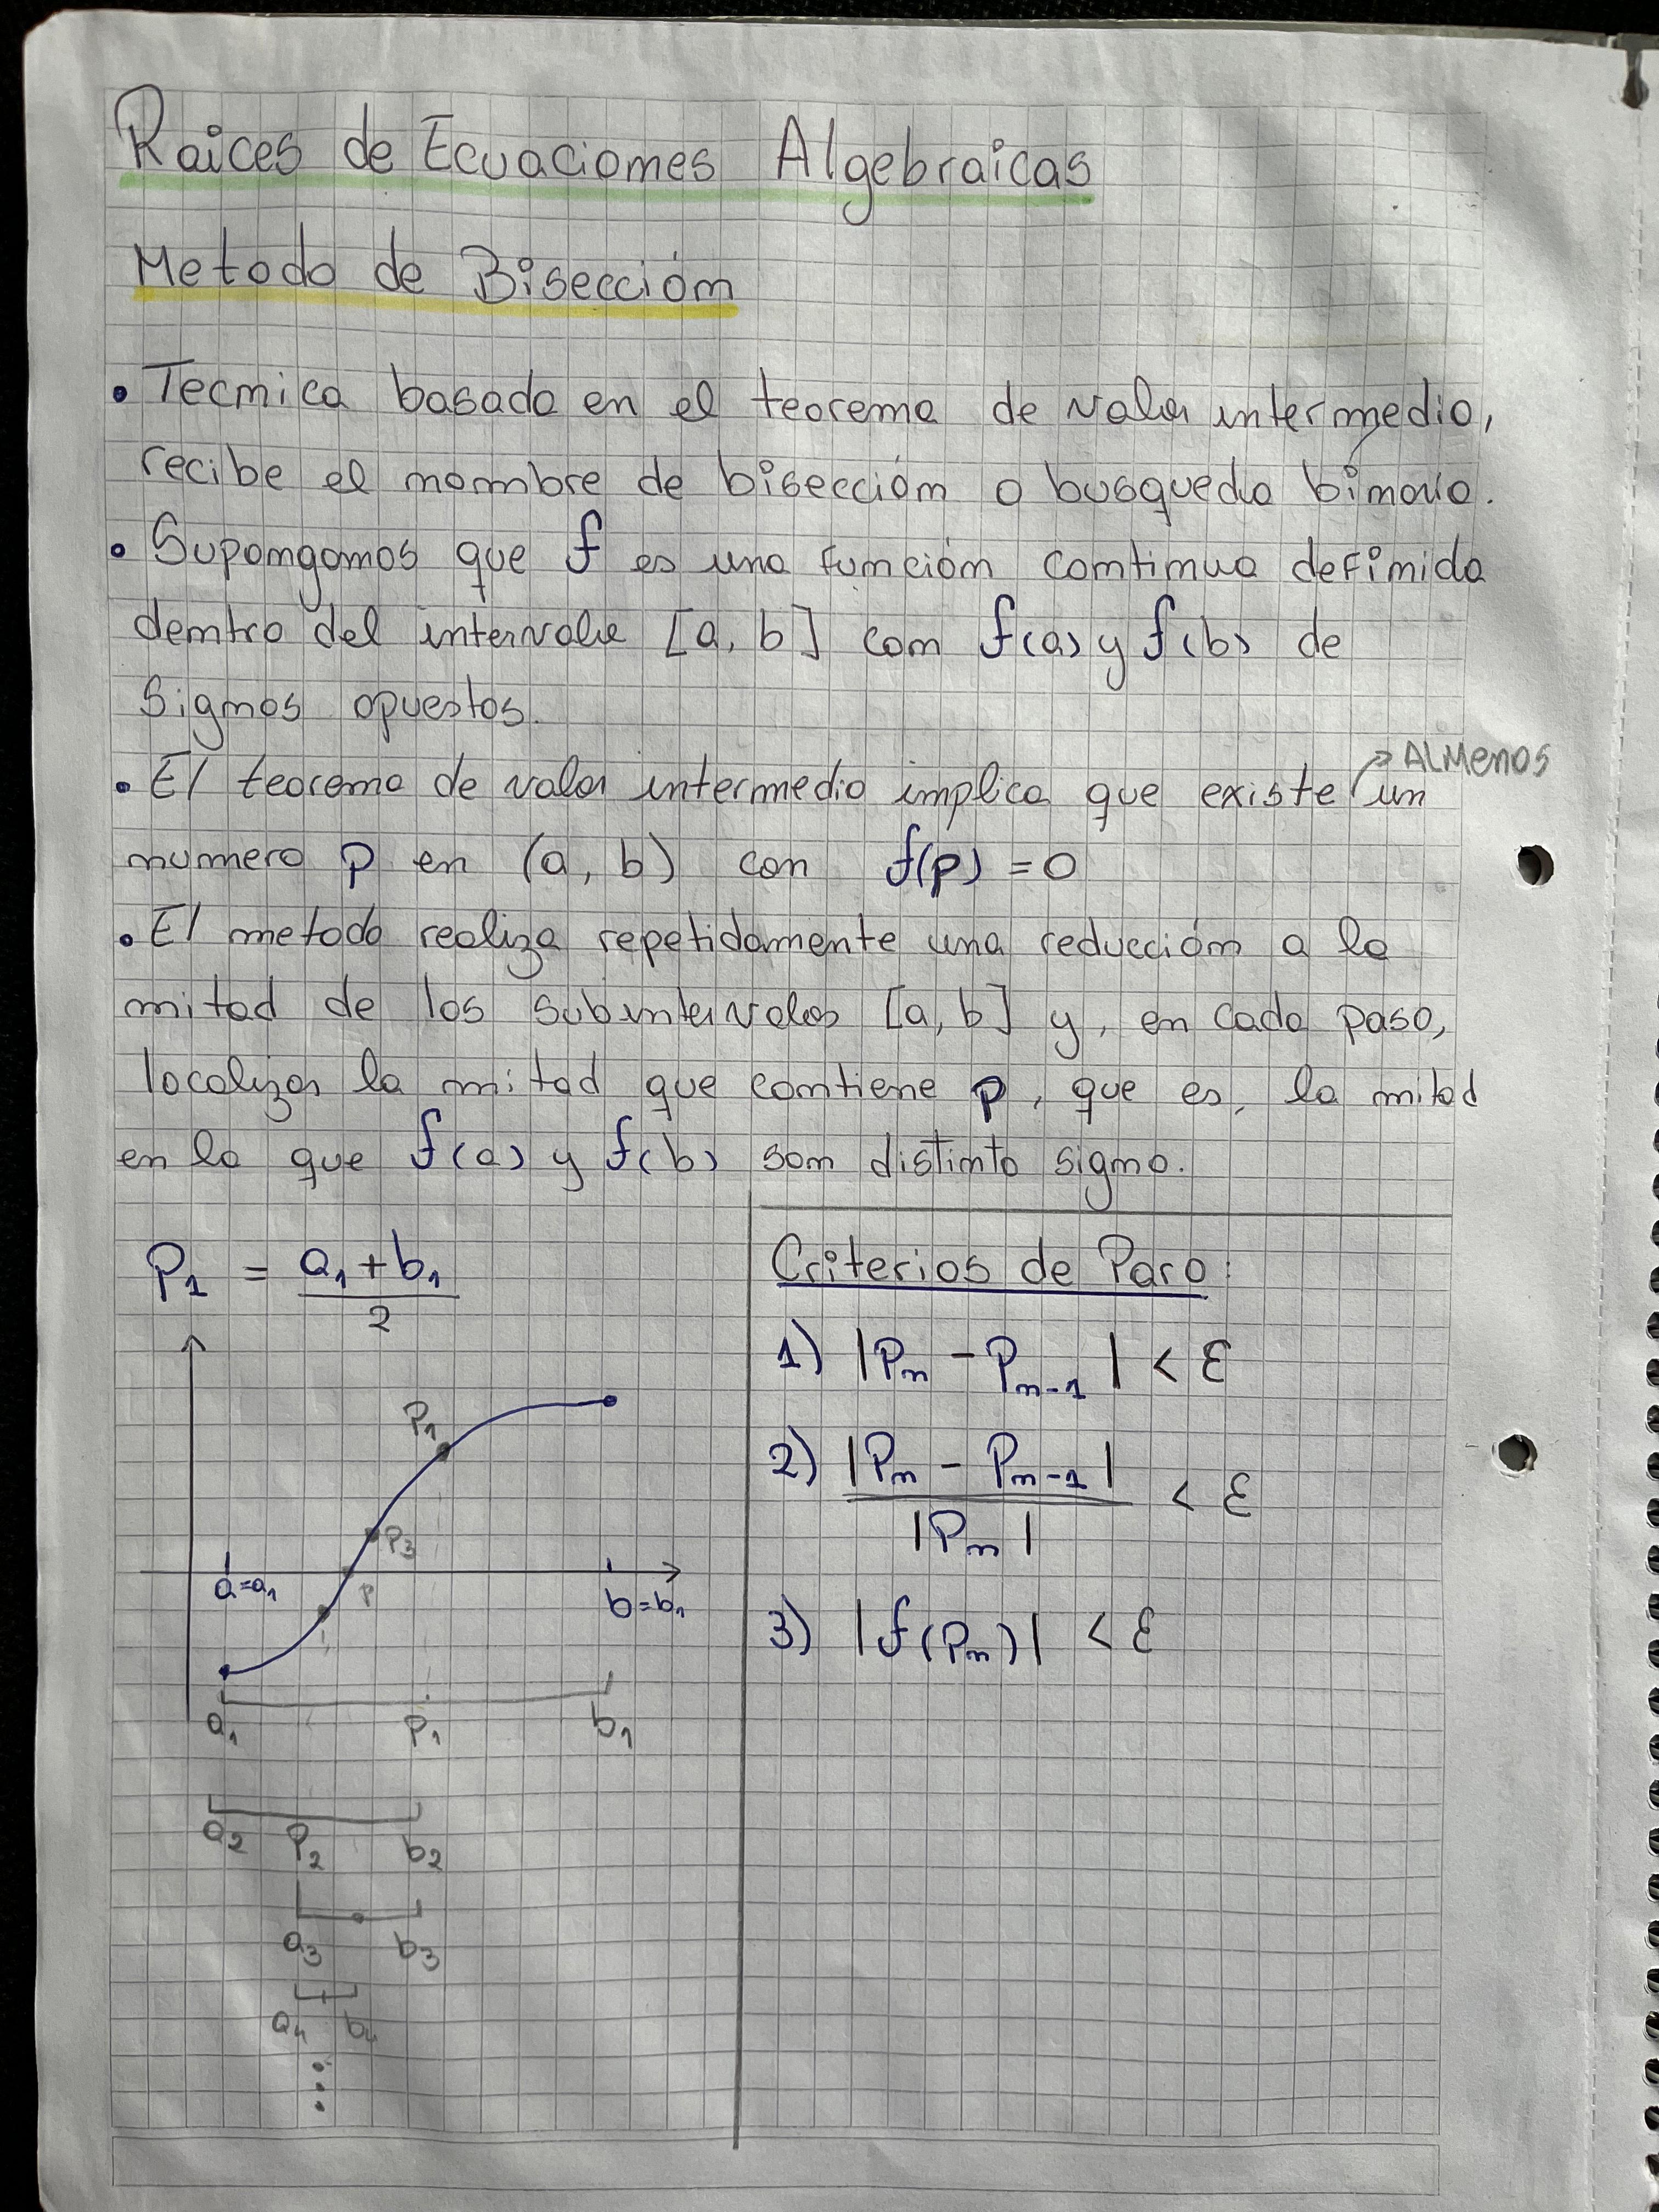 Raices de Ecuaciones Algebraicas
Metodo de Bisección
• Tecnica basada en el teorema de valor intermedio,
recibe el nombre de bisección o busqueda binaria.
• Supongamos que f es una función continua definida
dentro del intervalo [a, b] con f(a) y f(b) de
signos opuestos.
→ ALMenos
• El teorema de valor intermedio implica que existe un
numero p en (a, b) con f(p) = 0
• El metodo realiza repetidamente una reducción a la
mitad de los subintervalos [a, b] y, en cada paso,
localizar la mitad que contiene p, que es, la mitad
en la que f(a) y f(b) son distinto signo.
P₁ = (a₁ + b₁) / 2
P₁
P₃
a=a₁
P
b=b₁
a₁ P₁ b₁
a₂ P₂ b₂
a₃ b₃
a₄ b₄
Criterios de Paro:
1) |Pₙ - Pₙ₋₁| < ε
2) |Pₙ - Pₙ₋₁| / |Pₙ| < ε
3) |f(Pₙ)| < ε